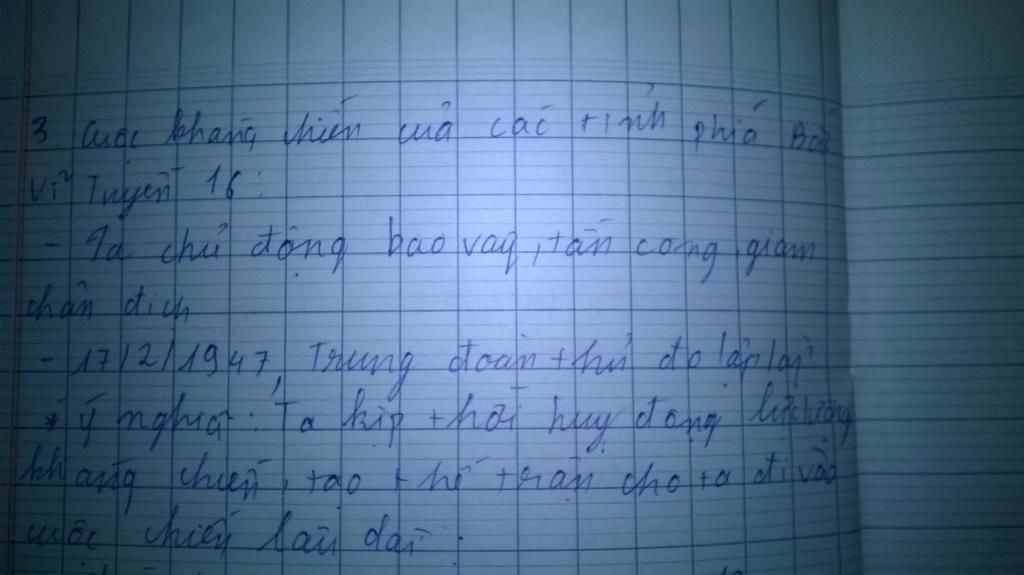 3. Cuộc kháng chiến của các tỉnh phía Bắc
Vĩ Tuyến 16:
- Ta chủ động bao vây, tấn công, giam
chân địch
- 17/2/1947, Trung đoàn thủ đô
* ý nghĩa: Ta kịp thời huy động lực lượng
kháng chiến, tạo thế trận cho ta đi vào
cuộc chiến lâu dài.